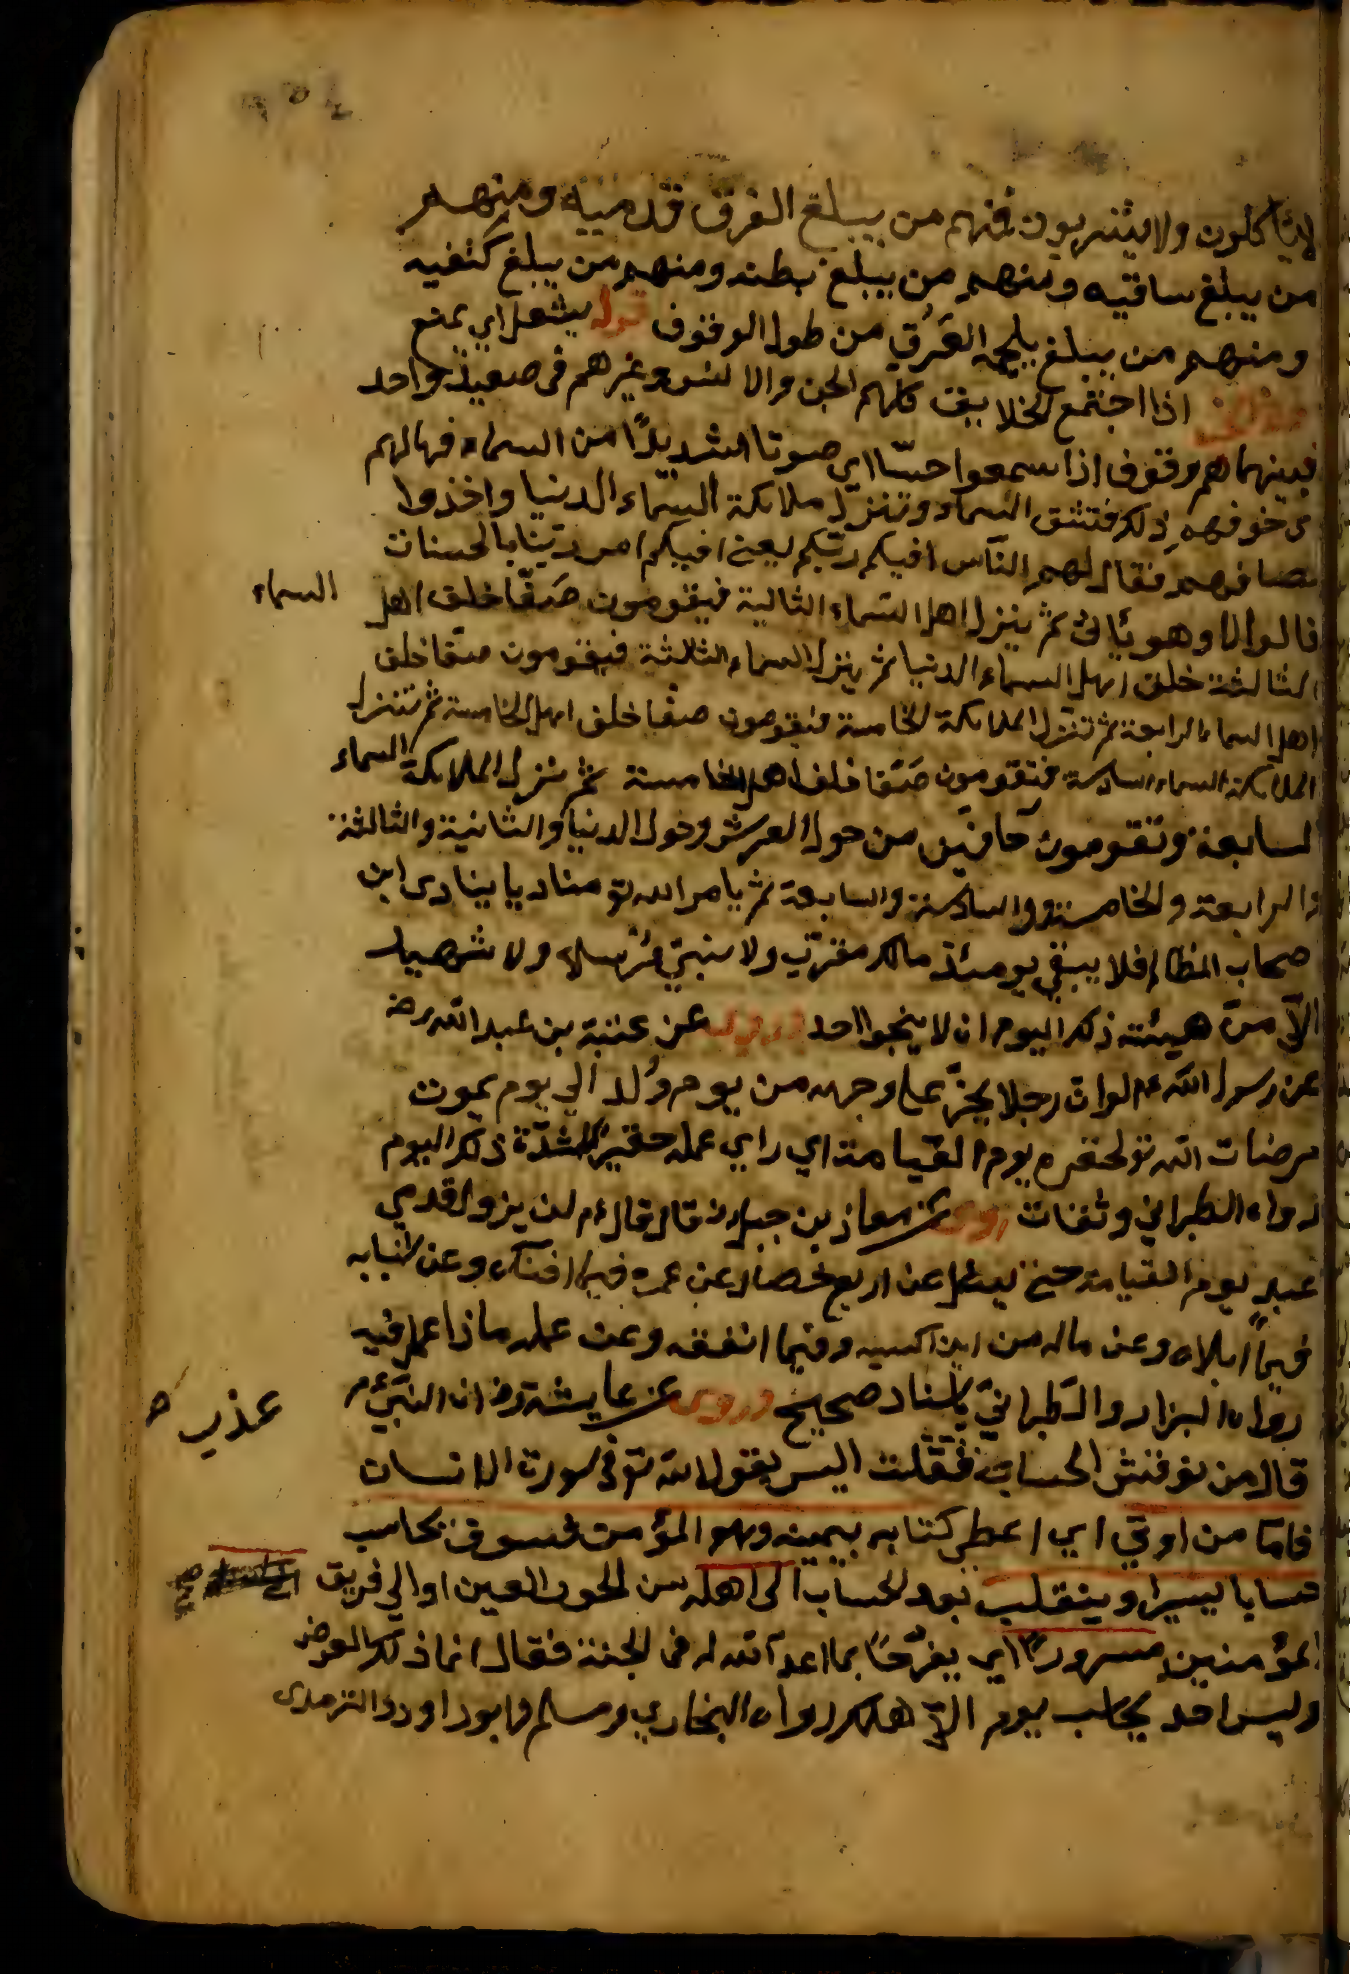 لا يأكلون ولا يشربون فمنهم من يبلغ العرق قدميه ومنهم
من يبلغ ساقيه ومنهم من يبلغ بطنه ومنهم من يبلغ كتفيه
ومنهم من يبلغ يلجمه العرق من طول الوقوف قوله يشغل اي يمنع
اذا اجتمع الخلايق كلهم الجن والانس وغيرهم في صعيد واحد
فبينما هم وقوف اذا سمعوا حسّا اي صوتا شديدًا من السماء فهالهم
خوفهم ذلك فتنشق السماء وتنزل ملائكة السماء الدنيا واخذوا
مصافهم فقال لهم الناس افيكم ربّكم يعني افيكم امر ربّنا بالحسنات
قالوا لا وهو يأتي ثم ينزل اهل السماء الثانية فيقومون صَفّا خلف اهل السماء
الثالثة خلف اهل السماء الدنيا ثم ينزل السماء الثالثة فيقومون صفّا خلف
اهل السماء الرابعة ثم تنزل الملائكة الخامسة فيقومون صفّا خلف اهل الخامسة ثم تنزل
الملائكة السماء السادسة فتقومون صَفّا خلف اهل الخامسة ثم ينزل الملائكة السماء
السابعة وتقومون حافّين من حول العرش وحول الدنيا والثانية والثالثة
والرابعة والخامسة والسادسة والسابعة ثم يأمر الله تع مناديا ينادي اين
صحاب المظالم فلا يبقى يومئذ ملك مقرّب ولا نبيّ مرسل ولا شهيد
الّا من هيئته ذلك اليوم ان لا ينجوا احد وروى عن عتبة بن عبد الله رض
عن رسول الله عم لو ان رجلا يجرّ على وجهه من يوم وُلد الي يوم يموت
مرضات الله تع لحقره يوم القيامة اي راي عمله حقيرًا لشدّة ذلك اليوم
رواه الطبراني وثقات روى عن معاذ بن جبل رض قال قال عم لن يزول قدمي
عبد يوم القيامة حتى يسئل عن اربع خصال عن عمره فيما افناه وعن شبابه
فيما ابلاه وعن ماله من اين اكسبه وفيما انفقه وعن عمله ماذا عمل فيه
رواه البزار والطبرانيّ باسناد صحيح وروى عن عايشة رض ان النبيّ عم
قال من نوقش الحساب عذب صح فقلت اليس يقول الله تع في سورة الانسان
فامّا من اوتي اي اعطي كتابه بيمينه وهو المؤمن فسوف يحاسب
حسابا يسيرا وينقلب بعد الحساب الى اهله من الحور العين او الي فريق
المؤمنين مسرورًا اي يفرّحًا بما اعدّ الله له في الجنة فقال انما ذلك العرض
وليس احد يحاسب يوم الّا هلك رواه البخاري ومسلم وابو داود والترمذى